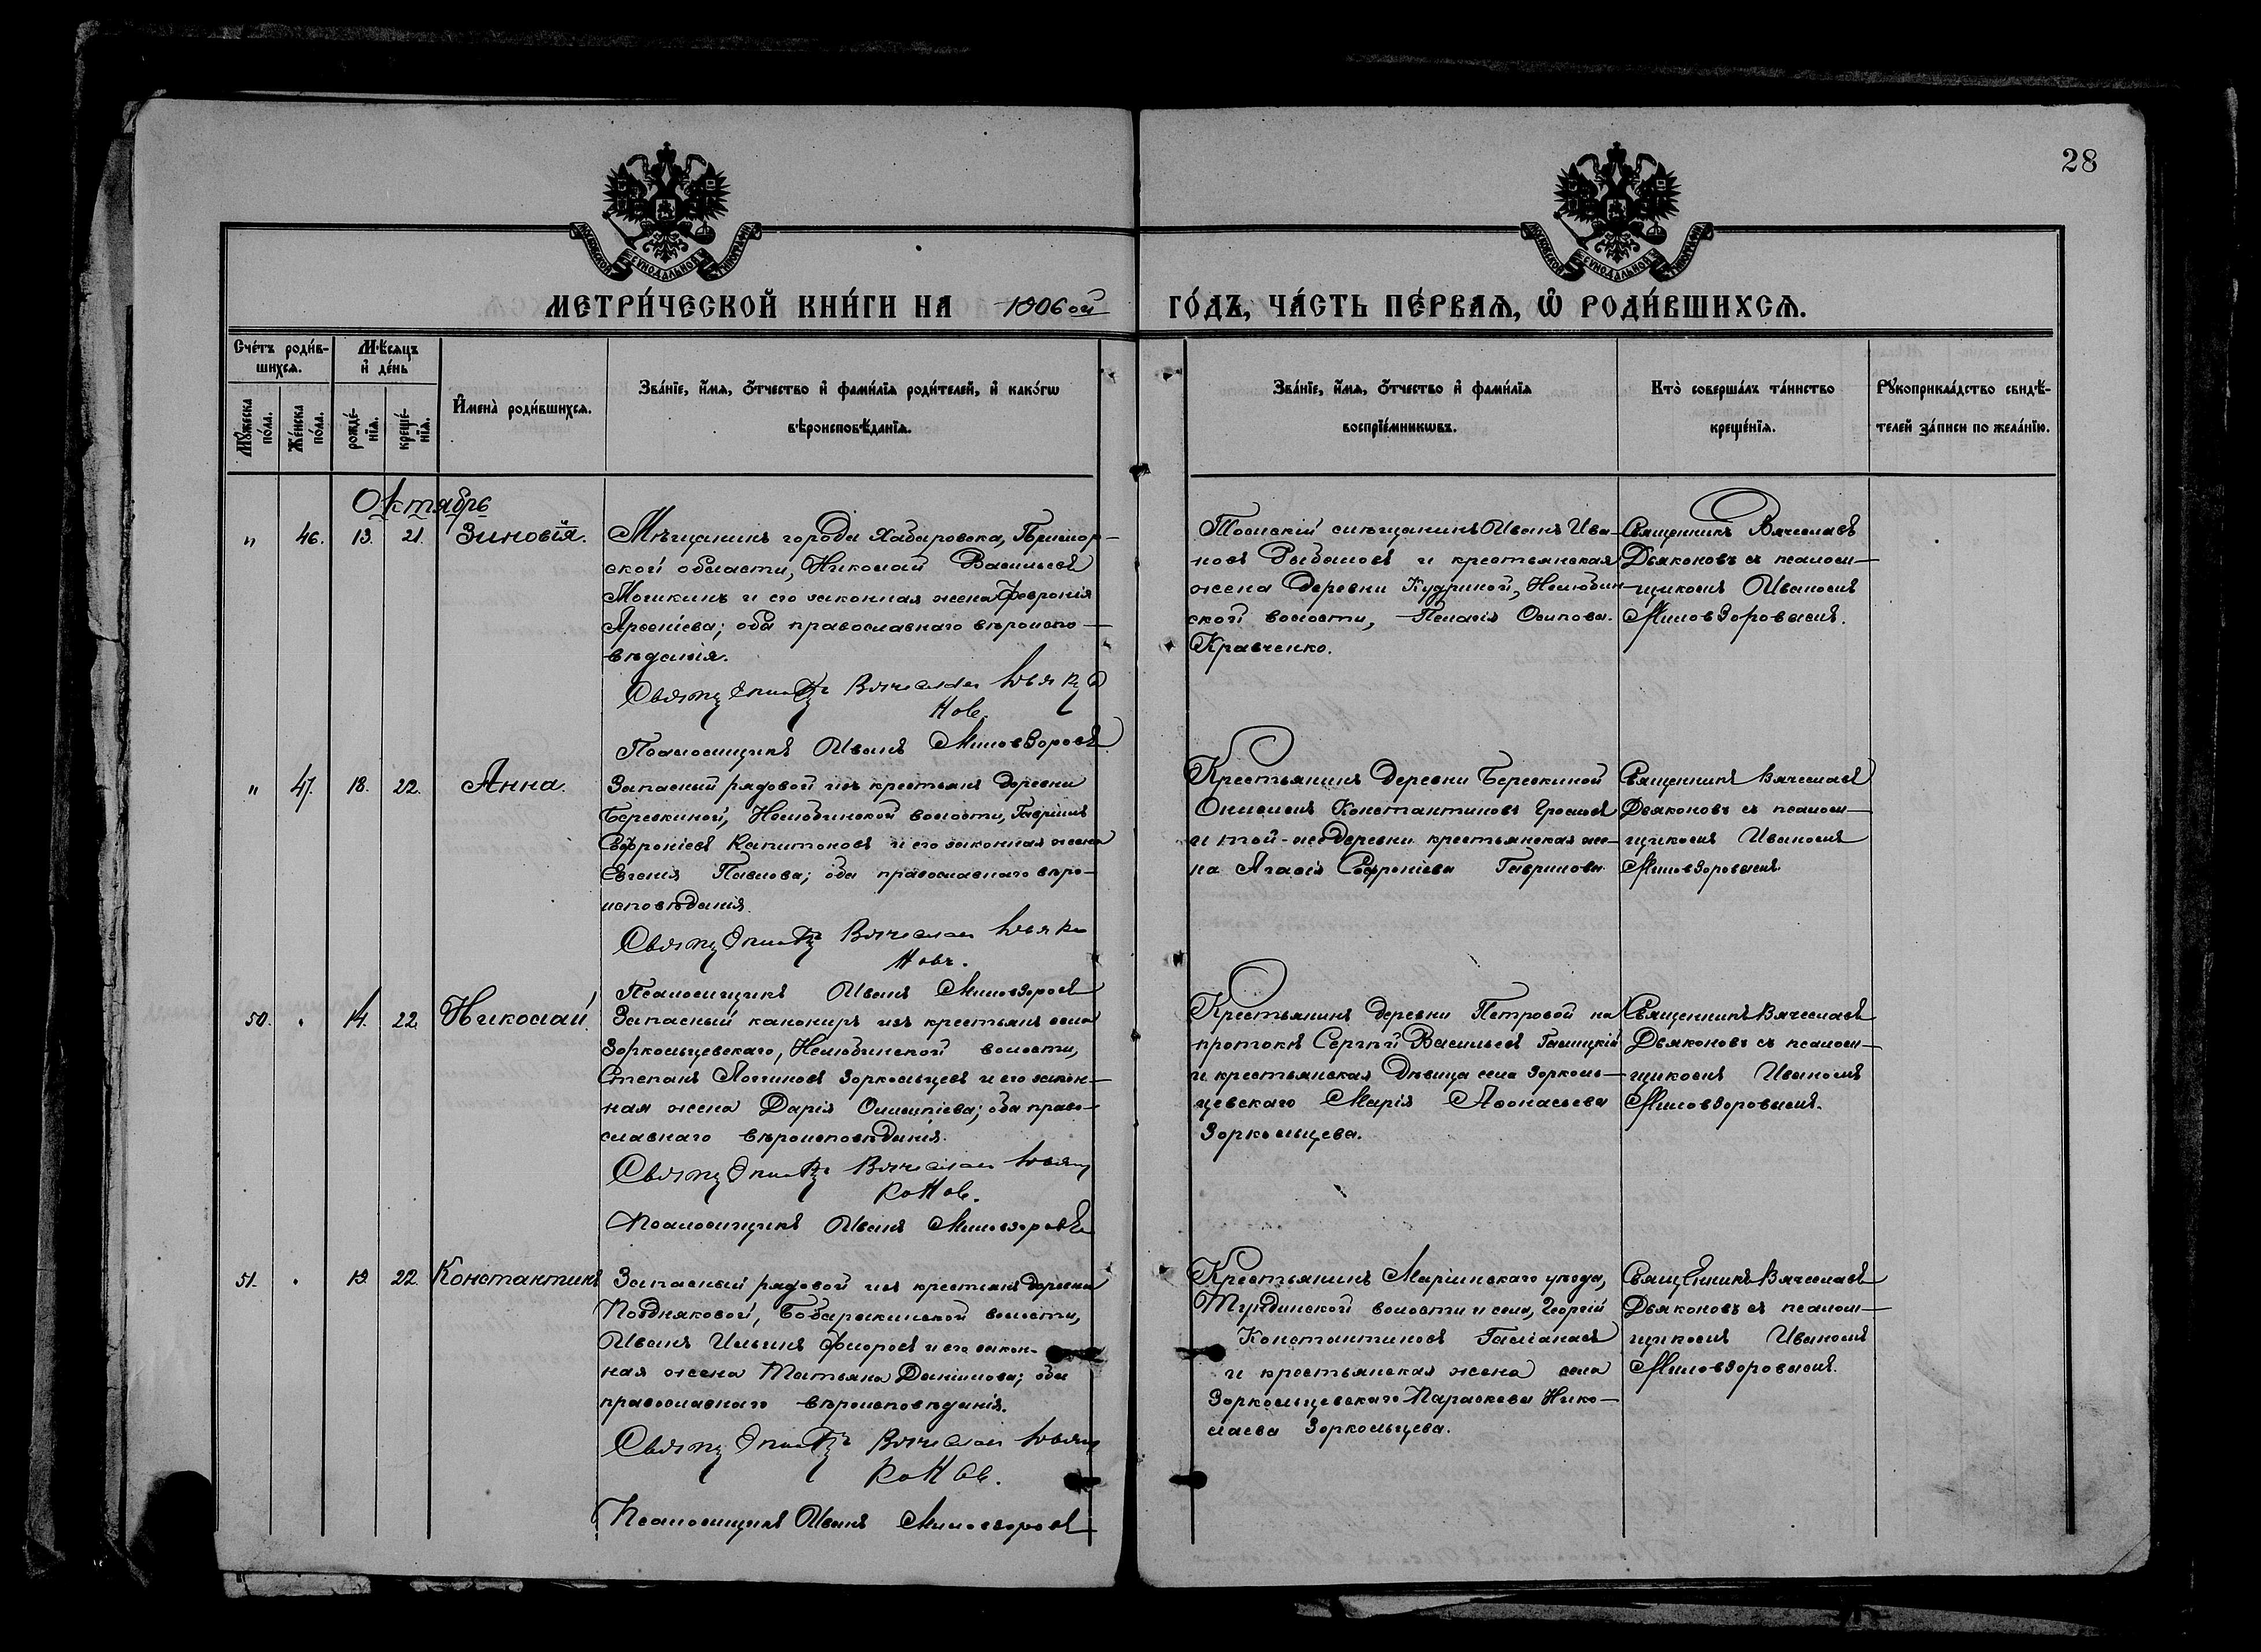 28
МОСКОВСКОЙ СѴНОДАЛЬНОЙ ТИПОГРАФІИ
МОСКОВСКОЙ СѴНОДАЛЬНОЙ ТИПОГРАФІИ
МЕТРИ́ЧЕСКОЙ КНИ́ГИ НА 1906ой ГО́ДЪ, ЧА́СТЬ ПЕ́РВАѦ, Ѽ РОДИ́ВШИХСѦ.
Сче́тъ роди́в-
шихсѧ.
Мꙋ́жеска по́ла.
Же́нска по́ла.
Мѣ́сѧцъ
и҆ де́нь
рожде́-
нїѧ.
креще́-
нїѧ.
И҆мена̀ роди́вшихсѧ.
Зва́нїе, и҆́мѧ, ѻ҆́тчество и҆ фами́лїѧ роди́телей, и҆ како́гѡ
вѣроисповѣ́данїѧ.
Зва́нїе, и҆́мѧ, ѻ҆́тчество и҆ фами́лїѧ
воспрїе́мникѡвъ.
Кто̀ соверша́лъ та́инство
креще́нїѧ.
Рꙋкоприкла́дство свидѣ́-
телей за́писи по жела́нїю.
Октябрь
" 46. 13. 21. Зиновія.
Мѣщанинъ города Хабаровска, Примор-
ской области, Николай Васильевъ
Мошкинъ и его законная жена Февронія
Арсеніева; оба православнаго вѣроиспо-
вѣданія.
Священникъ Вячеславъ Дьяко
новъ.
Псаломщикъ Иванъ Миловзоровъ
Томскій мѣщанинъ Иванъ Ива-
новъ Рыбаловъ и крестьянская
жена деревни Кудриной, Нелюбин-
ской волости, Пелагія Осипова
Кравченко.
Священникъ Вячеславъ
Дьяконовъ съ псалом-
щикомъ Иваномъ
Миловзоровымъ.
" 47. 18. 22. Анна.
Запасный рядовой изъ крестьянъ деревни
Березкиной, Нелюбинской волости, Гавріилъ
Софроніевъ Капитоновъ и его законная жена
Евгенія Павлова; оба православнаго вѣро-
исповѣданія.
Священникъ Вячеславъ Дьяко
новъ.
Псаломщикъ Иванъ Миловзоровъ
Крестьянинъ деревни Березкиной
Онисимъ Константиновъ
и той-же деревни крестьянская же-
на Агафія Софроніева Гаврилова
Священникъ Вячеславъ
Дьяконовъ съ псалом-
щикомъ Иваномъ
Миловзоровымъ.
50. " 14. 22. Николай.
Запасный канониръ изъ крестьянъ села
Зоркольцевскаго, Нелюбинской волости,
Степанъ Логиновъ Зоркольцевъ и его закон-
ная жена Дарія Олимпіева; оба право-
славнаго вѣроисповѣданія.
Священникъ Вячеславъ Дьяч
коновъ.
Псаломщикъ Иванъ Миловзоровъ
Крестьянинъ деревни Петровой на
протокѣ Сергѣй Васильевъ Галицкій
и крестьянская дѣвица села Зорколь-
цевскаго Марія Аѳонасьева
Зоркольцева.
Священникъ Вячеславъ
Дьяконовъ съ псалом-
щикомъ Иваномъ
Миловзоровымъ.
51. " 19. 22. Константинъ
Запасный рядовой изъ крестьянъ деревни
Поздняковой, Бобарыкинской волости,
Иванъ Ильинъ Флоровъ и его закон-
ная жена Татьяна Даніилова; оба
православнаго вѣроисповѣданія.
Священникъ Вячеславъ Дьяч
коновъ.
Псаломщикъ Иванъ Миловзоровъ
Крестьянинъ Маріинскаго уѣзда,
Тундинской волости и села, Георгій
Константиновъ
и крестьянская жена села
Зоркольцевскаго Параскева Нико-
лаева Зоркольцева.
Священникъ Вячеславъ
Дьяконовъ съ псалом-
щикомъ Иваномъ
Миловзоровымъ.